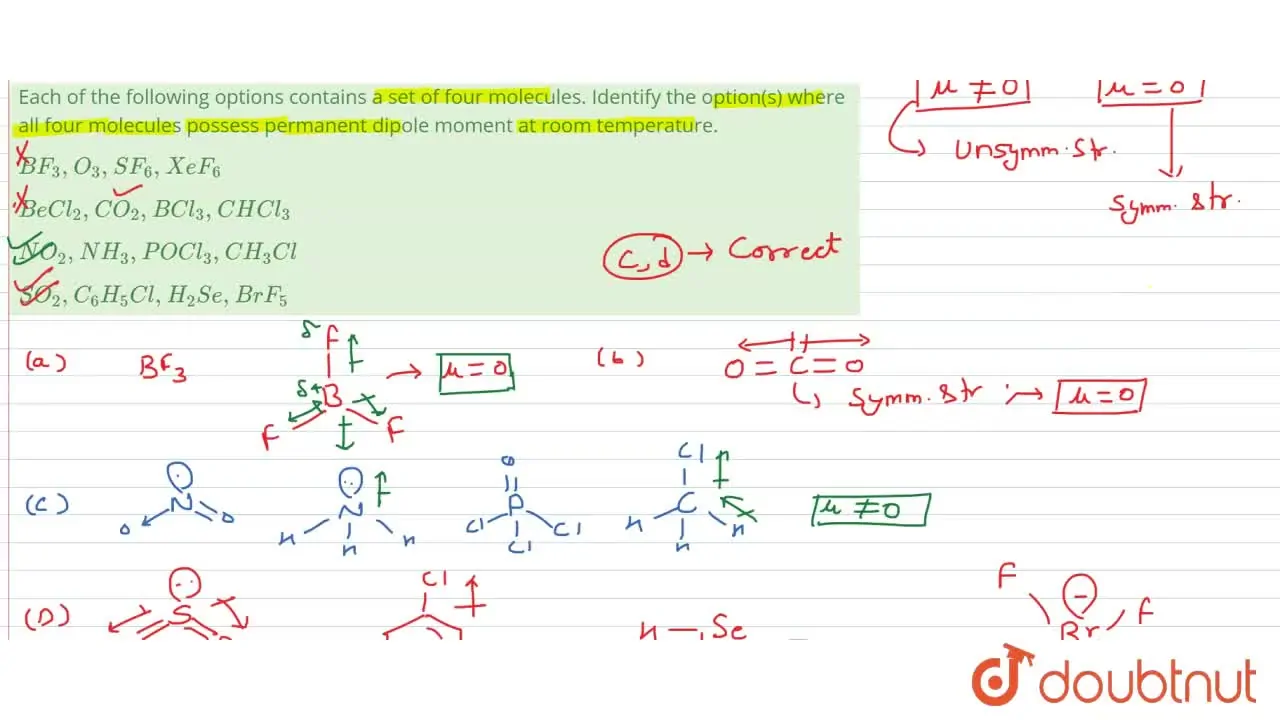 Each of the following options contains a set of four molecules. Identify the option(s) where
all four molecules possess permanent dipole moment at room temperature.
BF₃, O₃, SF₆, XeF₆
BeCl₂, CO₂, BCl₃, CHCl₃
NO₂, NH₃, POCl₃, CH₃Cl
SO₂, C₆H₅Cl, H₂Se, BrF₅
μ ≠ 0
μ = 0
Unsymm. Str.
Symm. Str.
C, d → Correct
(a) BF₃
δ- F
δ+ B
F F
→ μ = 0
(b) O = C = O
Symm. Str → μ = 0
(C)
N
O O
N
H H H
O
P
Cl Cl Cl
Cl
C
H H H
μ ≠ 0
(D)
S
Cl
H — Se
F
Br F
doubtnut